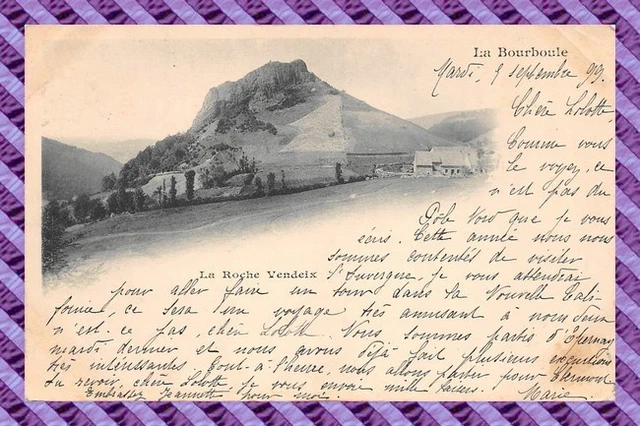 La Bourboule
Mardi, 5 septembre 99.
Chère Lolotte
Comme vous
le voyez, ce
n'est pas du
Pôle Nord que je vous
écris. Cette année nous nous
sommes contentés de visiter
La Roche Vendeix
l'Auvergne. Je vous attendrai
pour aller faire un tour dans la Nouvelle Cali-
fornie, ce sera un voyage très amusant à nous deux
n'est-ce pas chère Lolotte. Nous sommes partis d'Epernay
mardi dernier et nous avons déjà fait plusieurs excursions
très intéressantes. Tout-à-l'heure, nous allons partir pour Clermont
Au revoir, chère Lolotte, je vous envoie mille baisers.
Embrassez Jeannette pour moi.
Marie.